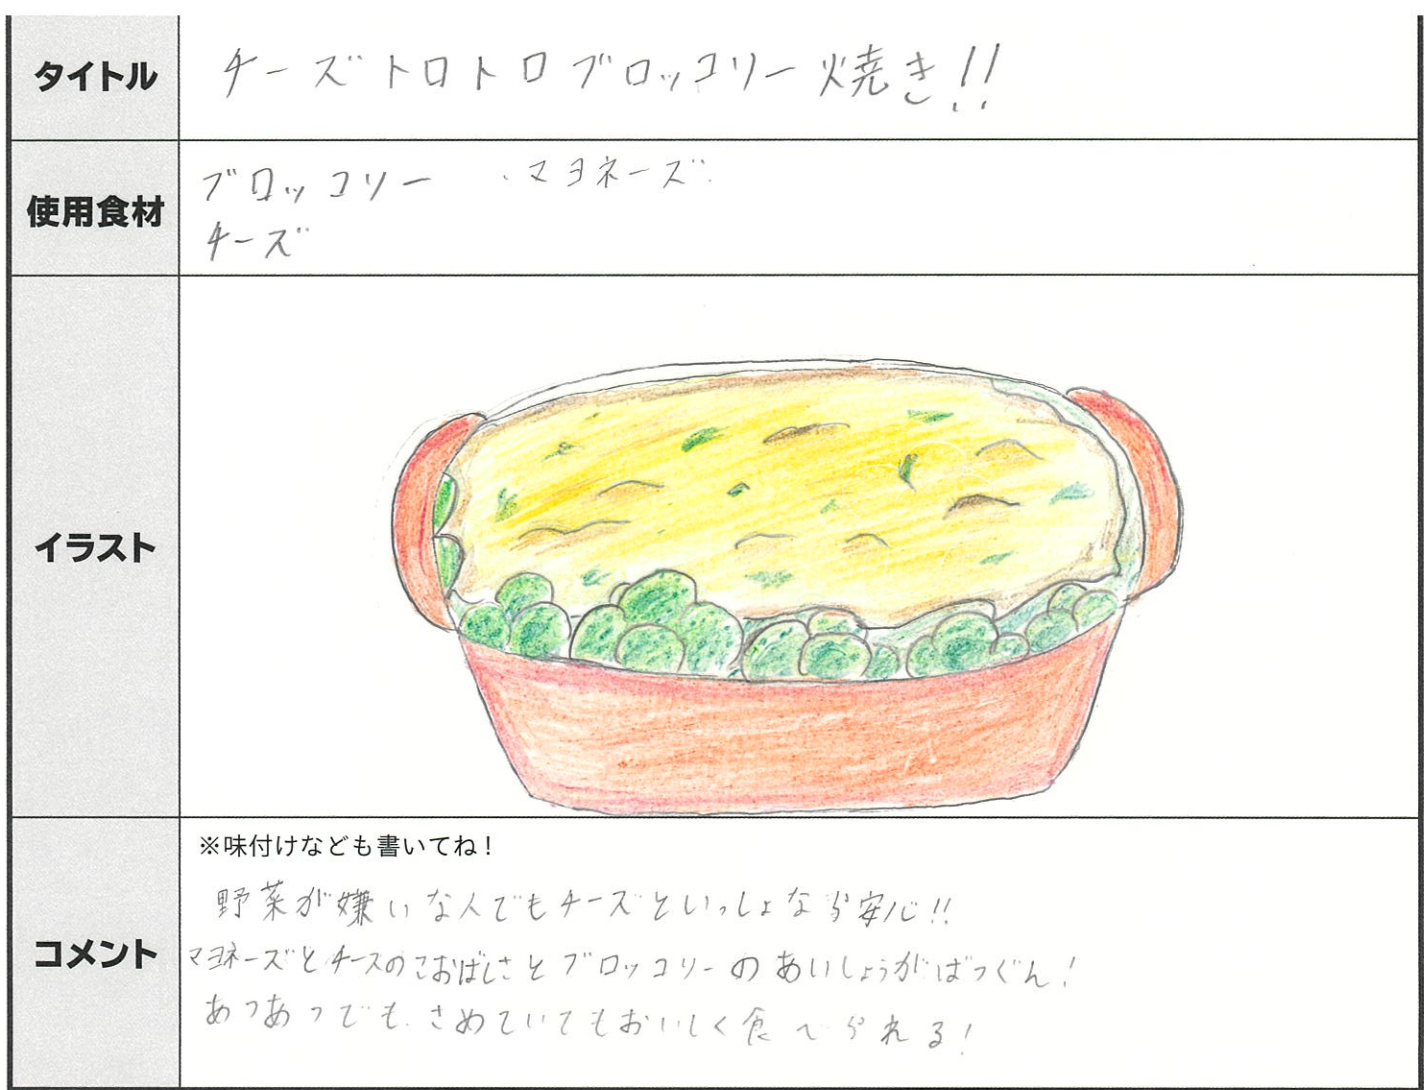 タイトル
チーズトロトロブロッコリー焼き!!
使用食材
ブロッコリー ・マヨネーズ
チーズ
イラスト
コメント
※味付けなども書いてね！
野菜が嫌いな人でもチーズといっしょなら安心!!
マヨネーズとチースのこおばしさとブロッコリーのあいしょうがばつぐん!
あつあつでも、さめていてもおいしく食べられる!